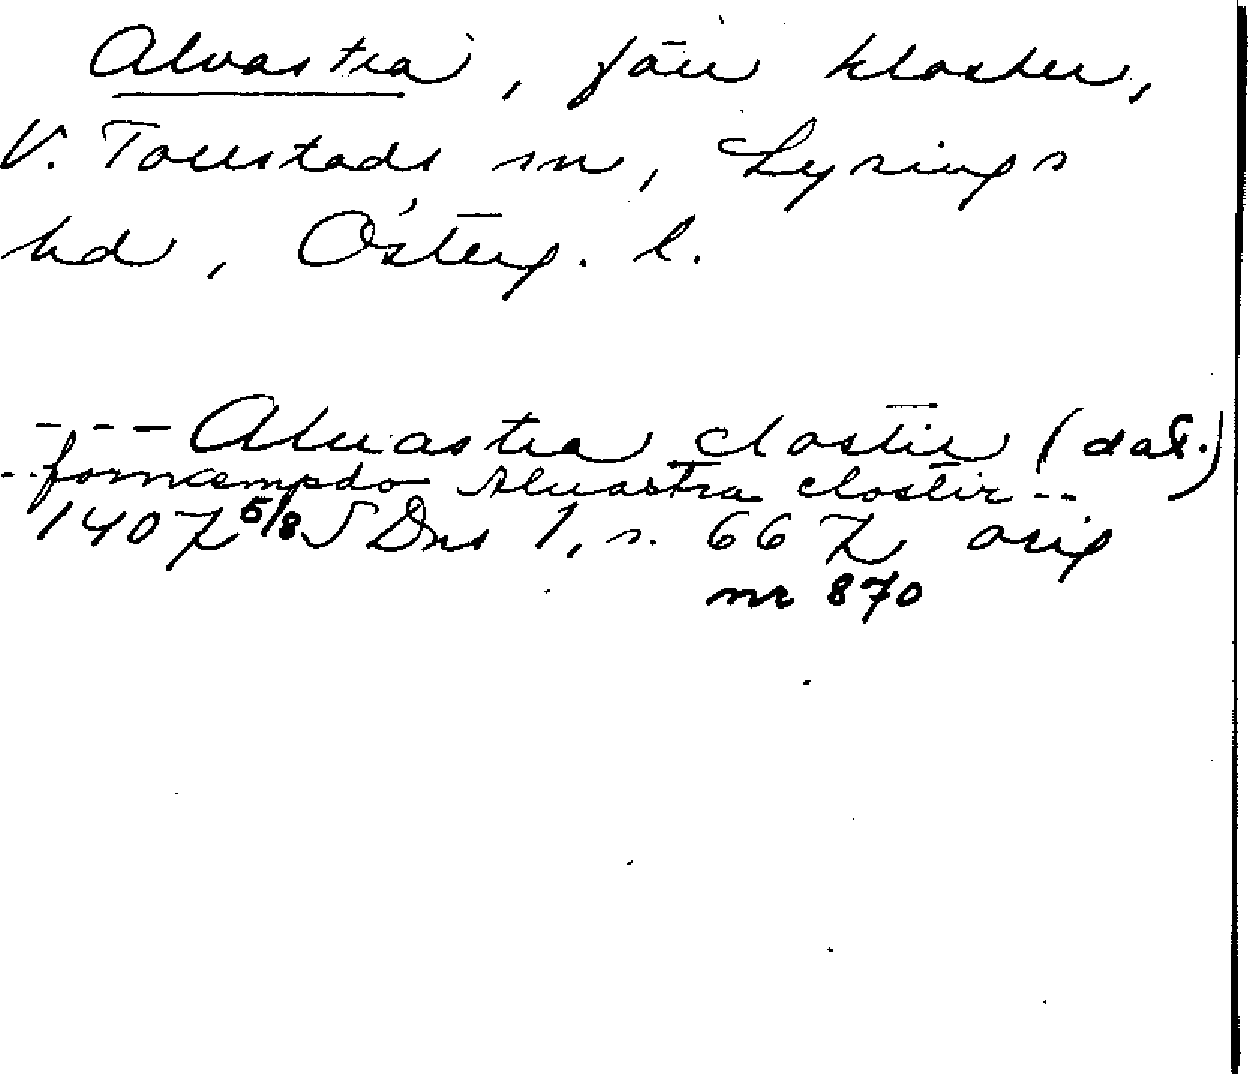 Alvastra, förr kloster,
V. Tollstads sn, Lysings
hd, Österg. l.
---Aluastra clostir (dat.)
Aluastra clostir--
1407 5/8 SDns 1, s. 667 orig
nr 870